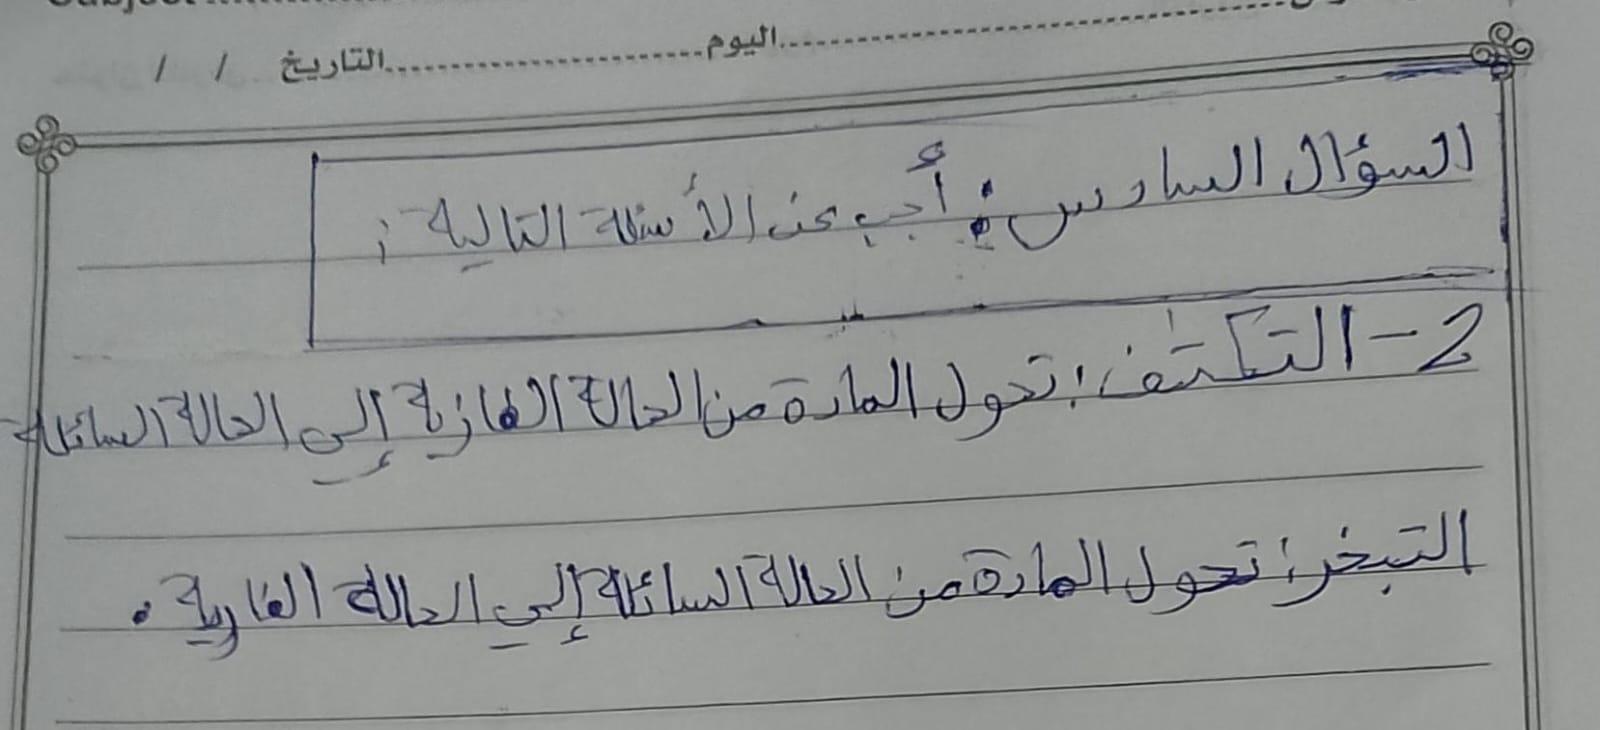 اليوم.......................... التاريخ / /
السؤال السادس: أجب عن الأسئلة التالية:
2- التكثف: تحول المادة من الحالة الغازية إلى الحالة السائلة
التبخر: تحول المادة من الحالة السائلة إلى الحالة الغازية.